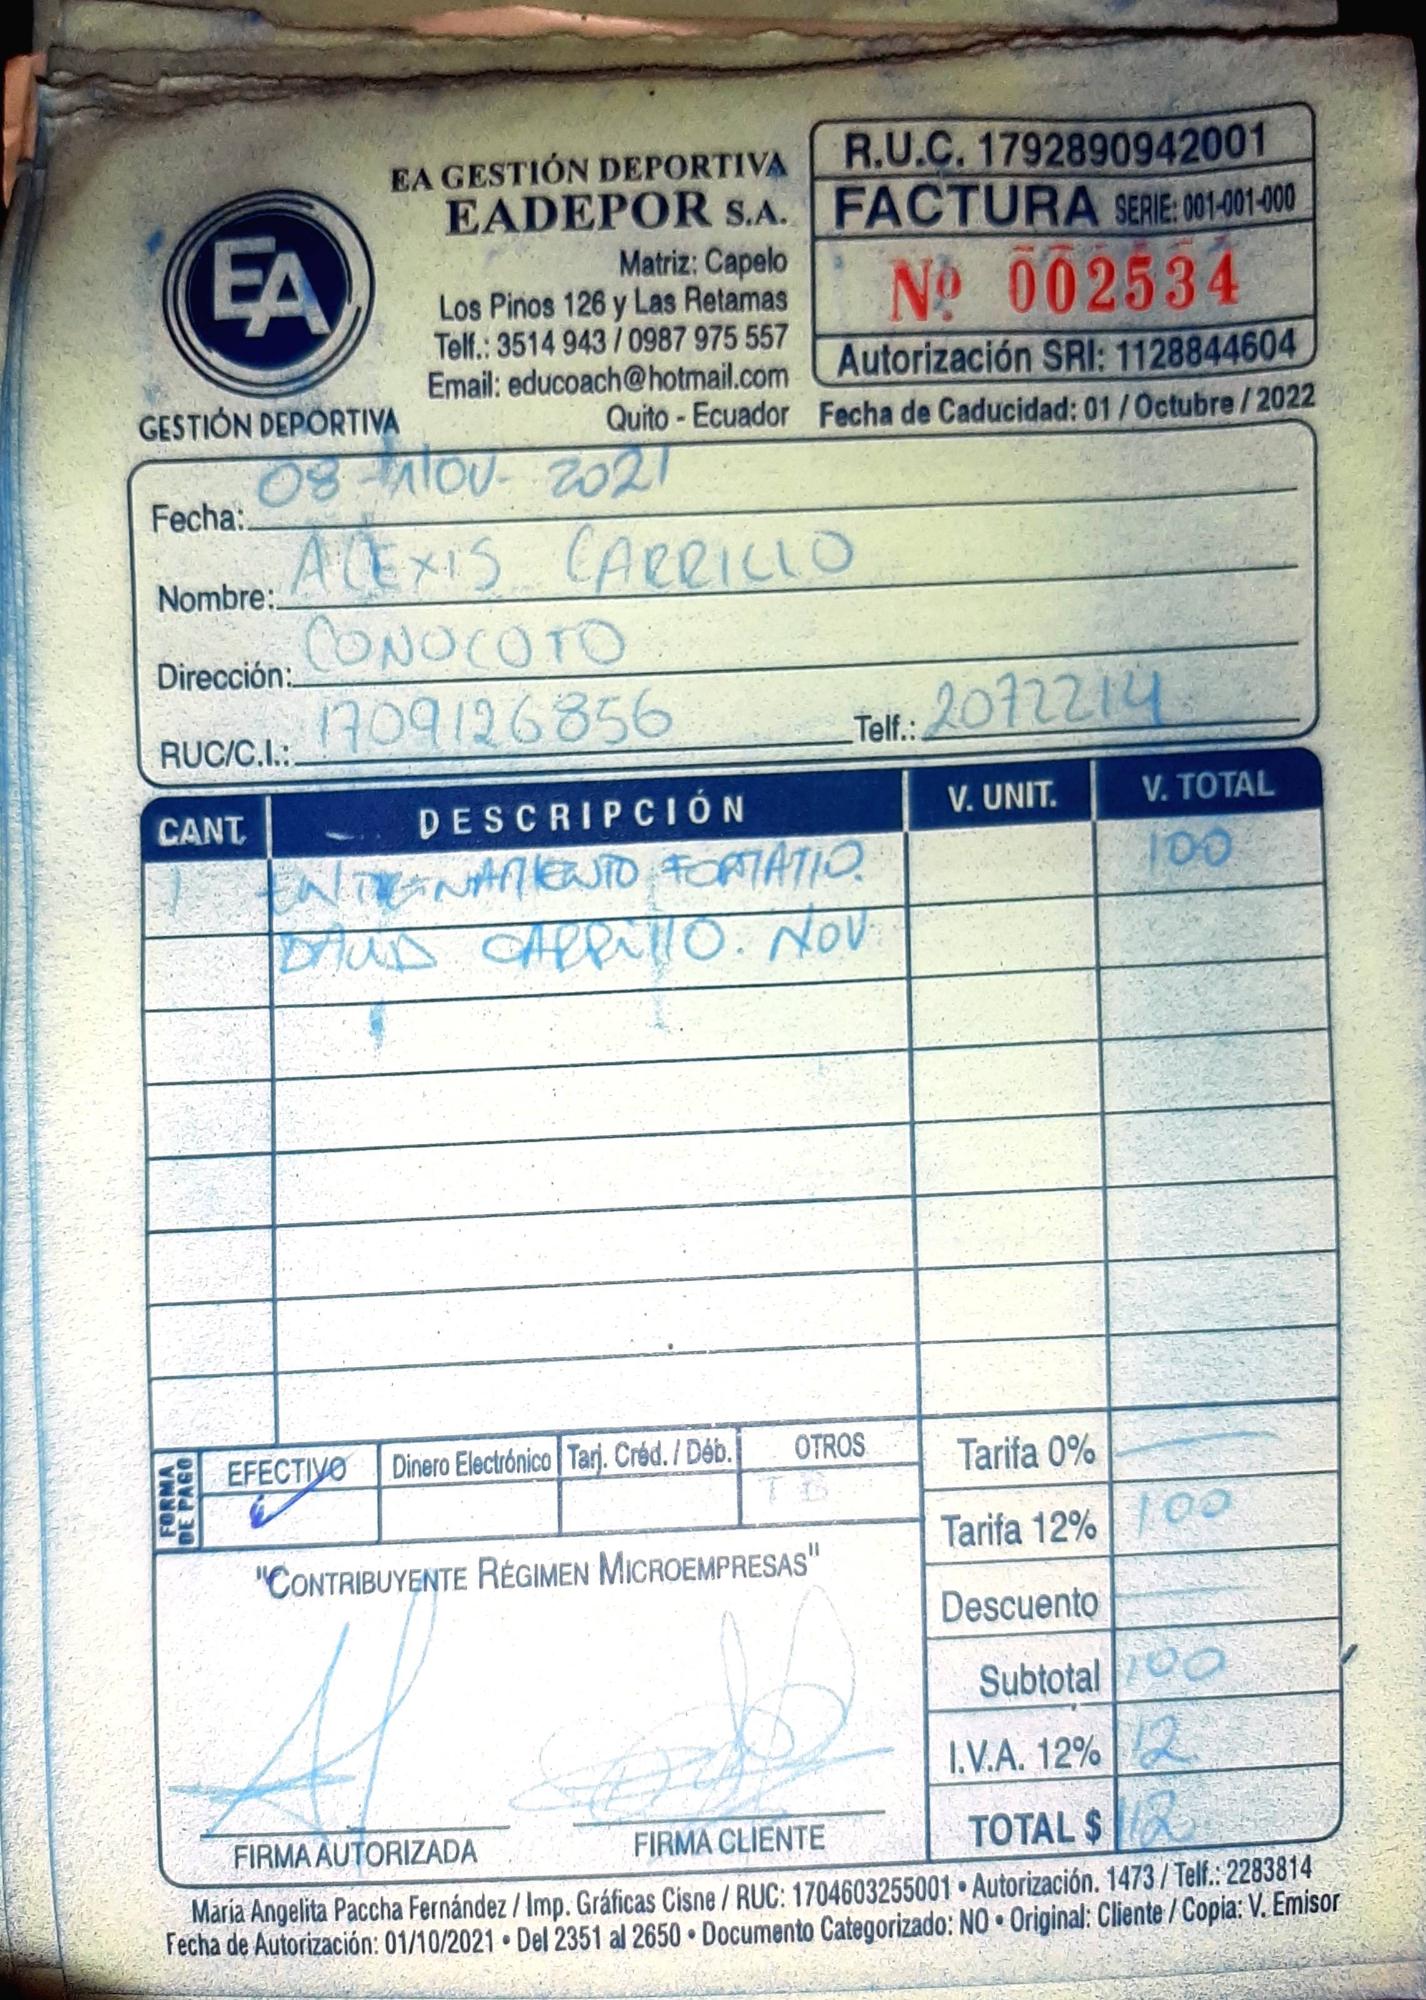 EA
GESTIÓN DEPORTIVA
EA GESTIÓN DEPORTIVA
EADEPOR S.A.
Matriz: Capelo
Los Pinos 126 y Las Retamas
Telf.: 3514 943 / 0987 975 557
Email: educoach@hotmail.com
Quito - Ecuador
R.U.C. 1792890942001
FACTURA SERIE: 001-001-000
Nº 002534
Autorización SRI: 1128844604
Fecha de Caducidad: 01 / Octubre / 2022
Fecha: 08 - NOV - 2021
Nombre: ALEXIS CARRILLO
Dirección: CONOCOTO
RUC/C.I.: 1709126856 Telf.: 2072214
CANT. DESCRIPCIÓN V. UNIT. V. TOTAL
1 ENTRENAMIENTO FORMATIO. 100
DAVID CARRILLO. NOV
FORMA DE PAGO EFECTIVO Dinero Electrónico Tarj. Créd. / Déb. OTROS
TB
Tarifa 0%
Tarifa 12% 100
Descuento
Subtotal 100
I.V.A. 12% 12
TOTAL $ 112
"CONTRIBUYENTE RÉGIMEN MICROEMPRESAS"
FIRMA AUTORIZADA FIRMA CLIENTE
María Angelita Paccha Fernández / Imp. Gráficas Cisne / RUC: 1704603255001 • Autorización. 1473 / Telf.: 2283814
Fecha de Autorización: 01/10/2021 • Del 2351 al 2650 • Documento Categorizado: NO • Original: Cliente / Copia: V. Emisor